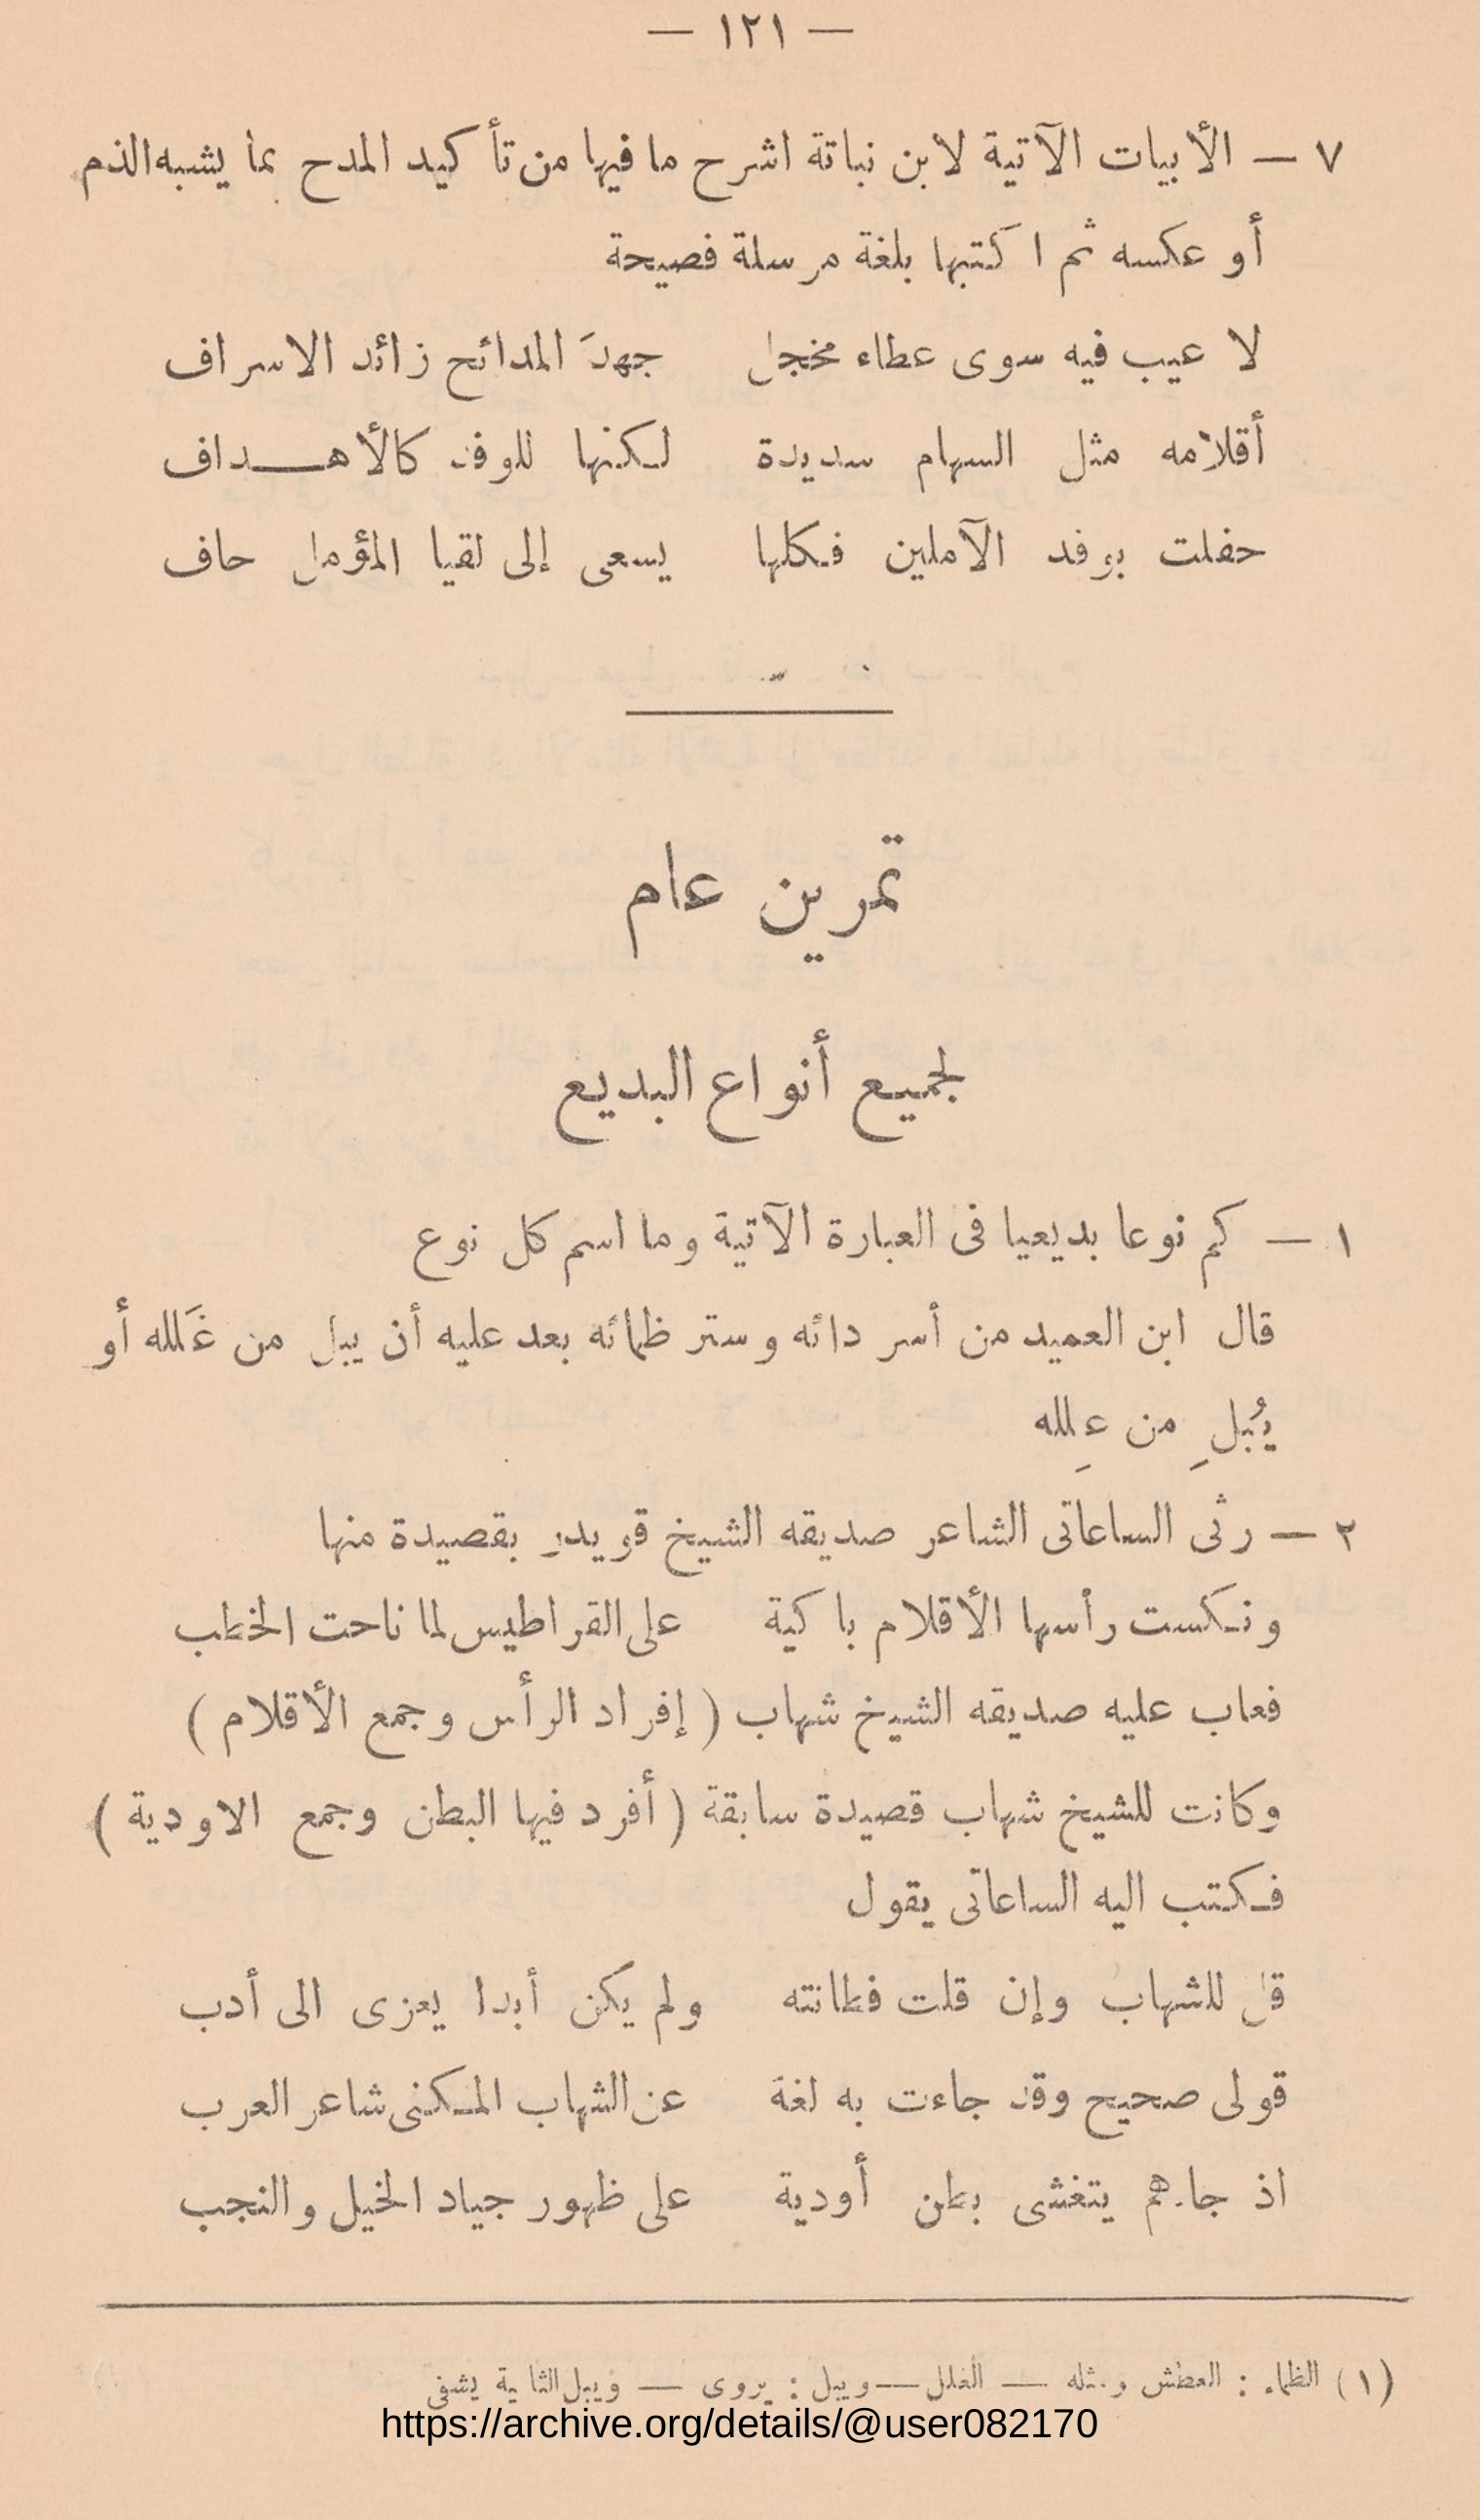 — ١٢١ —
٧ — الأبيات الآتية لابن نباتة اشرح ما فيها من تأكيد المدح بما يشبه الذم
أو عكسه ثم اكتبها بلغة مرسلة فصيحة
لا عيب فيه سوى عطاء مخجل جهدَ المدائح زائد الاسراف
أقلامه مثل السهام سديدة لكنها للوفد كالأهداف
حفلت بوفد الآملين فكلها يسعى إلى لقيا المؤمل حاف
تمرين عام
لجميع أنواع البديع
١ — كم نوعا بديعيا فى العبارة الآتية وما اسم كل نوع
قال ابن العميد من أسر دائه وستر ظمائه بعد عليه أن يبل من غَلله أو
يُبلِ من عِلله
٢ — رثى الساعاتى الشاعر صديقه الشيخ قويدر بقصيدة منها
ونكست رأسها الأقلام باكية على القراطيس لما ناحت الخطب
فعاب عليه صديقه الشيخ شهاب ( إفراد الرأس وجمع الأقلام )
وكانت للشيخ شهاب قصيدة سابقة ( أفرد فيها البطن وجمع الاودية )
فكتب اليه الساعاتى يقول
قل للشهاب وإن قلت فطانته ولم يكن أبدا يعزى الى أدب
قولى صحيح وقد جاءت به لغة عن الشهاب المكنى شاعر العرب
اذ جاءهم يتغشى بطن أودية على ظهور جياد الخيل والنجب
(١) الظماء : العطش ومثله — الغلل — ويبل : يروى — ويبل الثانية يشفى
https://archive.org/details/@user082170